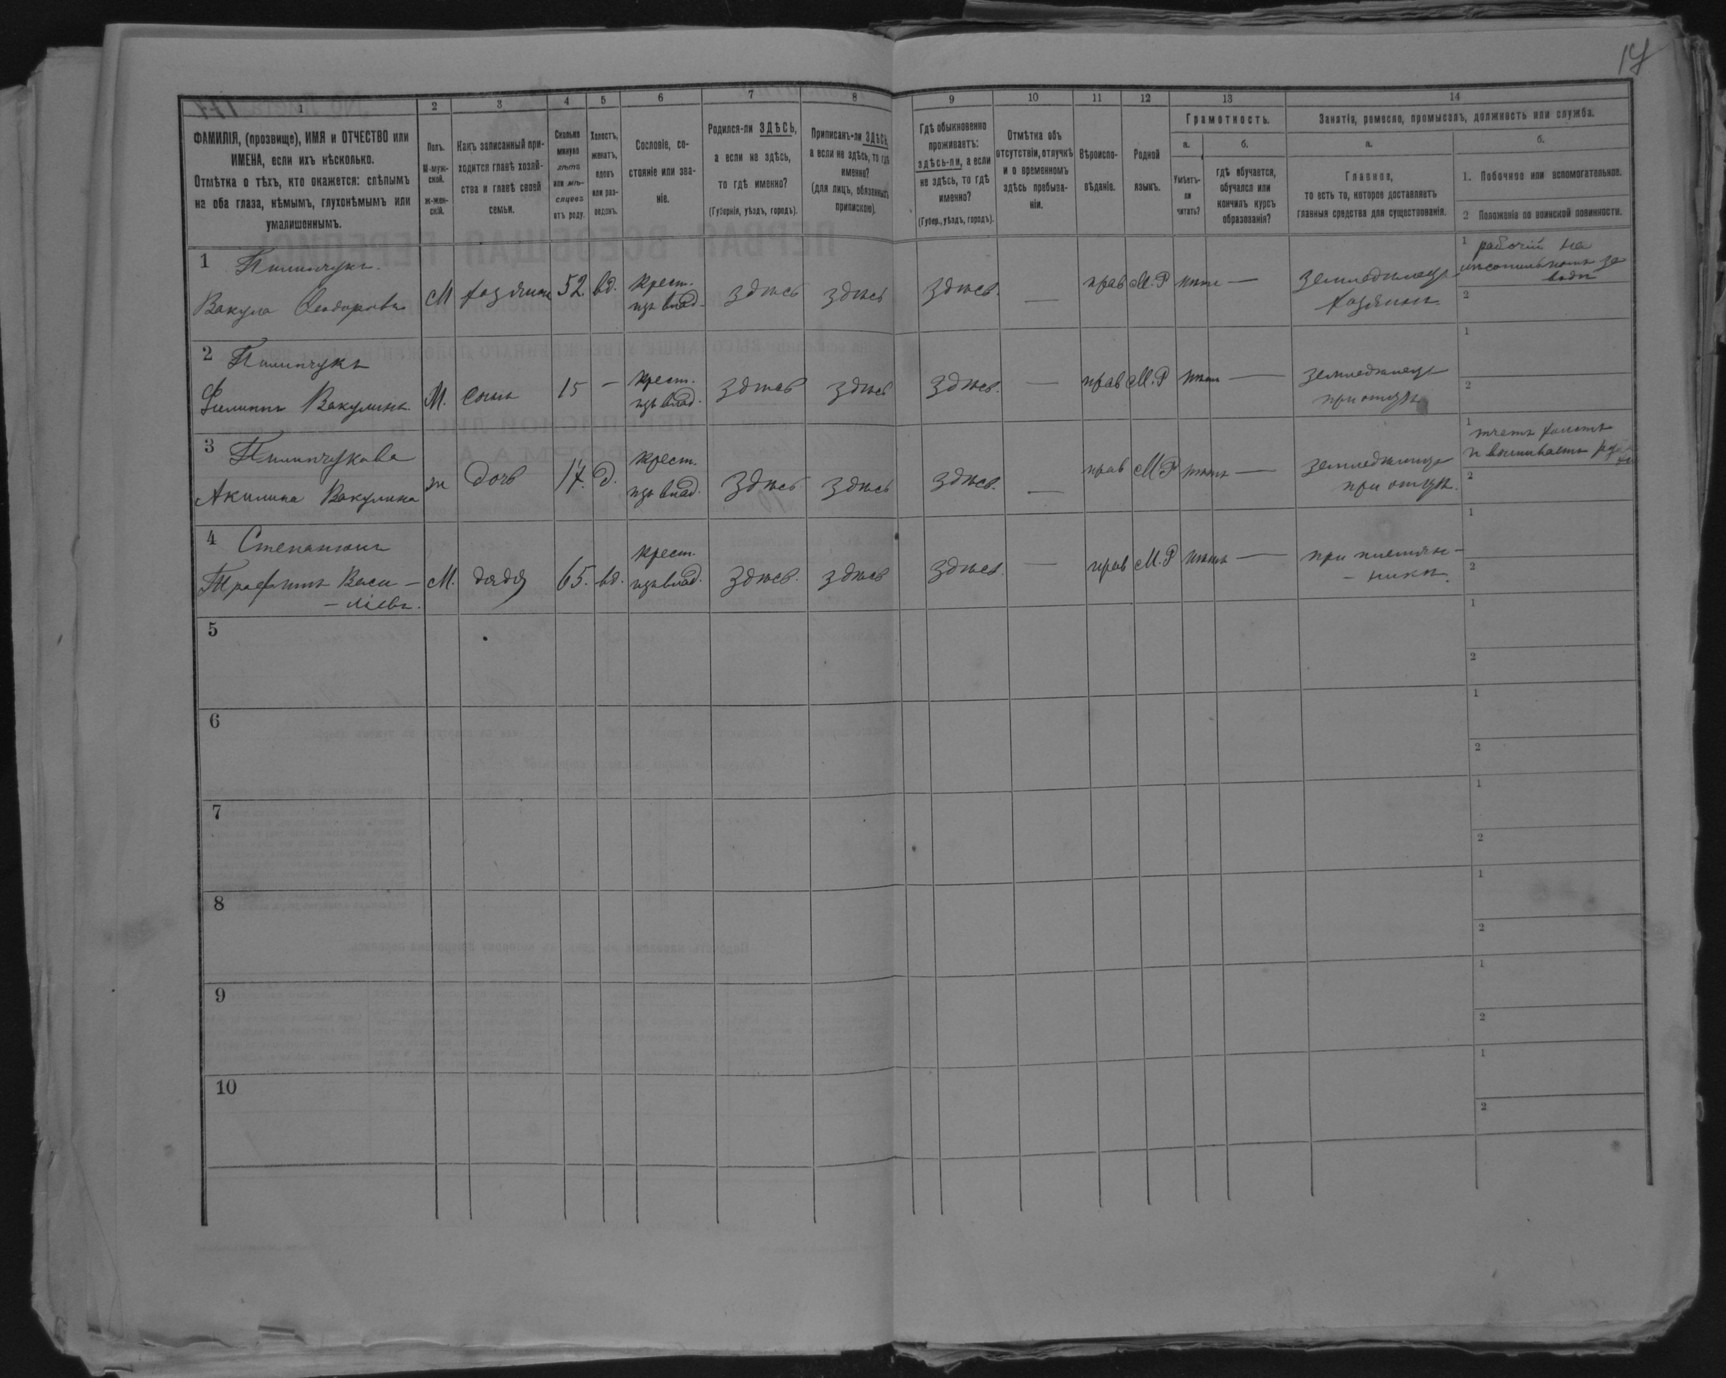 17
1 2 3 4 5 6 7 8 9 10 11 12 13 14
ФАМИЛІЯ, (прозвище), ИМЯ и ОТЧЕСТВО или
ИМЕНА, если ихъ нѣсколько.
Отмѣтка о тѣхъ, кто окажется: слѣпымъ
на оба глаза, нѣмымъ, глухонѣмымъ или
умалишеннымъ.
Полъ.
М-муж-
ской.
ж-жен-
скій.
Какъ записанный при-
ходится главѣ хозяй-
ства и главѣ своей
семьи.
Сколько
минуло
лѣтъ
или мѣ-
сяцевъ
отъ роду.
Холостъ,
женатъ,
вдовъ
или раз-
веденъ.
Сословіе, со-
стояніе или зва-
ніе.
Родился-ли ЗДѢСЬ,
а если не здѣсь,
то гдѣ именно?
(Губернія, уѣздъ, городъ).
Приписанъ-ли ЗДѢСЬ,
а если не здѣсь, то гдѣ
именно?
(для лицъ, обязанныхъ
припискою).
Гдѣ обыкновенно
проживаетъ:
здѣсь-ли, а если
не здѣсь, то гдѣ
именно?
(Губер., уѣздъ, городъ).
Отмѣтка объ
отсутствіи, отлучкѣ
и о временномъ
здѣсь пребыва-
ніи.
Вѣроиспо-
вѣданіе.
Родной
языкъ.
Грамотность.
а.
Умѣетъ-
ли
читать?
б.
гдѣ обучается,
обучался или
кончилъ курсъ
образованія?
Занятіе, ремесло, промыселъ, должность или служба.
а.
Главное,
то есть то, которое доставляетъ
главныя средства для существованія.
б.
1. Побочное или вспомогательное.
2 Положеніе по воинской повинности.
1 Пилипчукъ
Вакула Ѳеодоровъ М хозяинъ 52 вд. крест. изъ влад. здѣсь здѣсь здѣсь. — прав М.Р нѣтъ — земледѣлецъ хозяинъ
1 рабочій на
заводѣ
2
2 Пилипчукъ
Филиппъ Вакулинъ М. сынъ 15 — крест. изъ влад. здѣсь здѣсь здѣсь. — прав М.Р нѣтъ — земледѣлецъ при отцѣ
1
2
3 Пилипчукова
Акилина Вакулина ж дочь 17. д. крест. изъ влад. здѣсь здѣсь здѣсь. — прав М.Р нѣтъ — земледѣлица при отцѣ.
1 ткетъ холстъ
и вышиваетъ
2
4 Степанюкъ
Трофимъ Васи-
-ліевъ. М. дядя 65. вд. крест. изъ влад. здѣсь. здѣсь здѣсь — прав М.Р нѣтъ — при племян-
-никѣ.
1
2
5
1
2
6
1
2
7
1
2
8
1
2
9
1
2
10
1
2